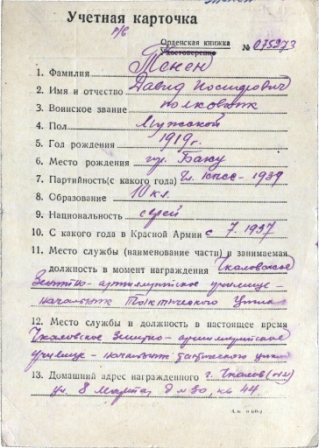 Учетная карточка
Орденская книжка
Удостоверение
№ 075973
1. Фамилия Тенен
2. Имя и отчество Давид Иосифович
3. Воинское звание полковник
4. Пол Мужской
5. Год рождения 1919г.
6. Место рождения гор. Баку
7. Партийность (с какого года) Чл. КПСС - 1939
8. Образование 10 кл.
9. Национальность еврей
10. С какого года в Красной Армии с 7.1937
11. Место службы (наименование части) и занимаемая
должность в момент награждения Чкаловское
Зенитно-артиллерийское училище -
начальник Тактического Цикла
12. Место службы и должность в настоящее время
Чкаловское Зенитно-артиллерийское
училище - начальник тактического цикла
13. Домашний адрес награжденного г. Чкалов
ул. 8 марта, д кв. 44